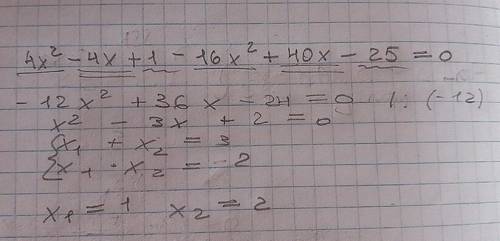 4x² - 4x + 1 - 16x² + 40x - 25 = 0
- 12x² + 36x - 24 = 0 /: (-12)
x² - 3x + 2 = 0
{x₁ + x₂ = 3
{x₁ · x₂ = 2
x₁ = 1 x₂ = 2